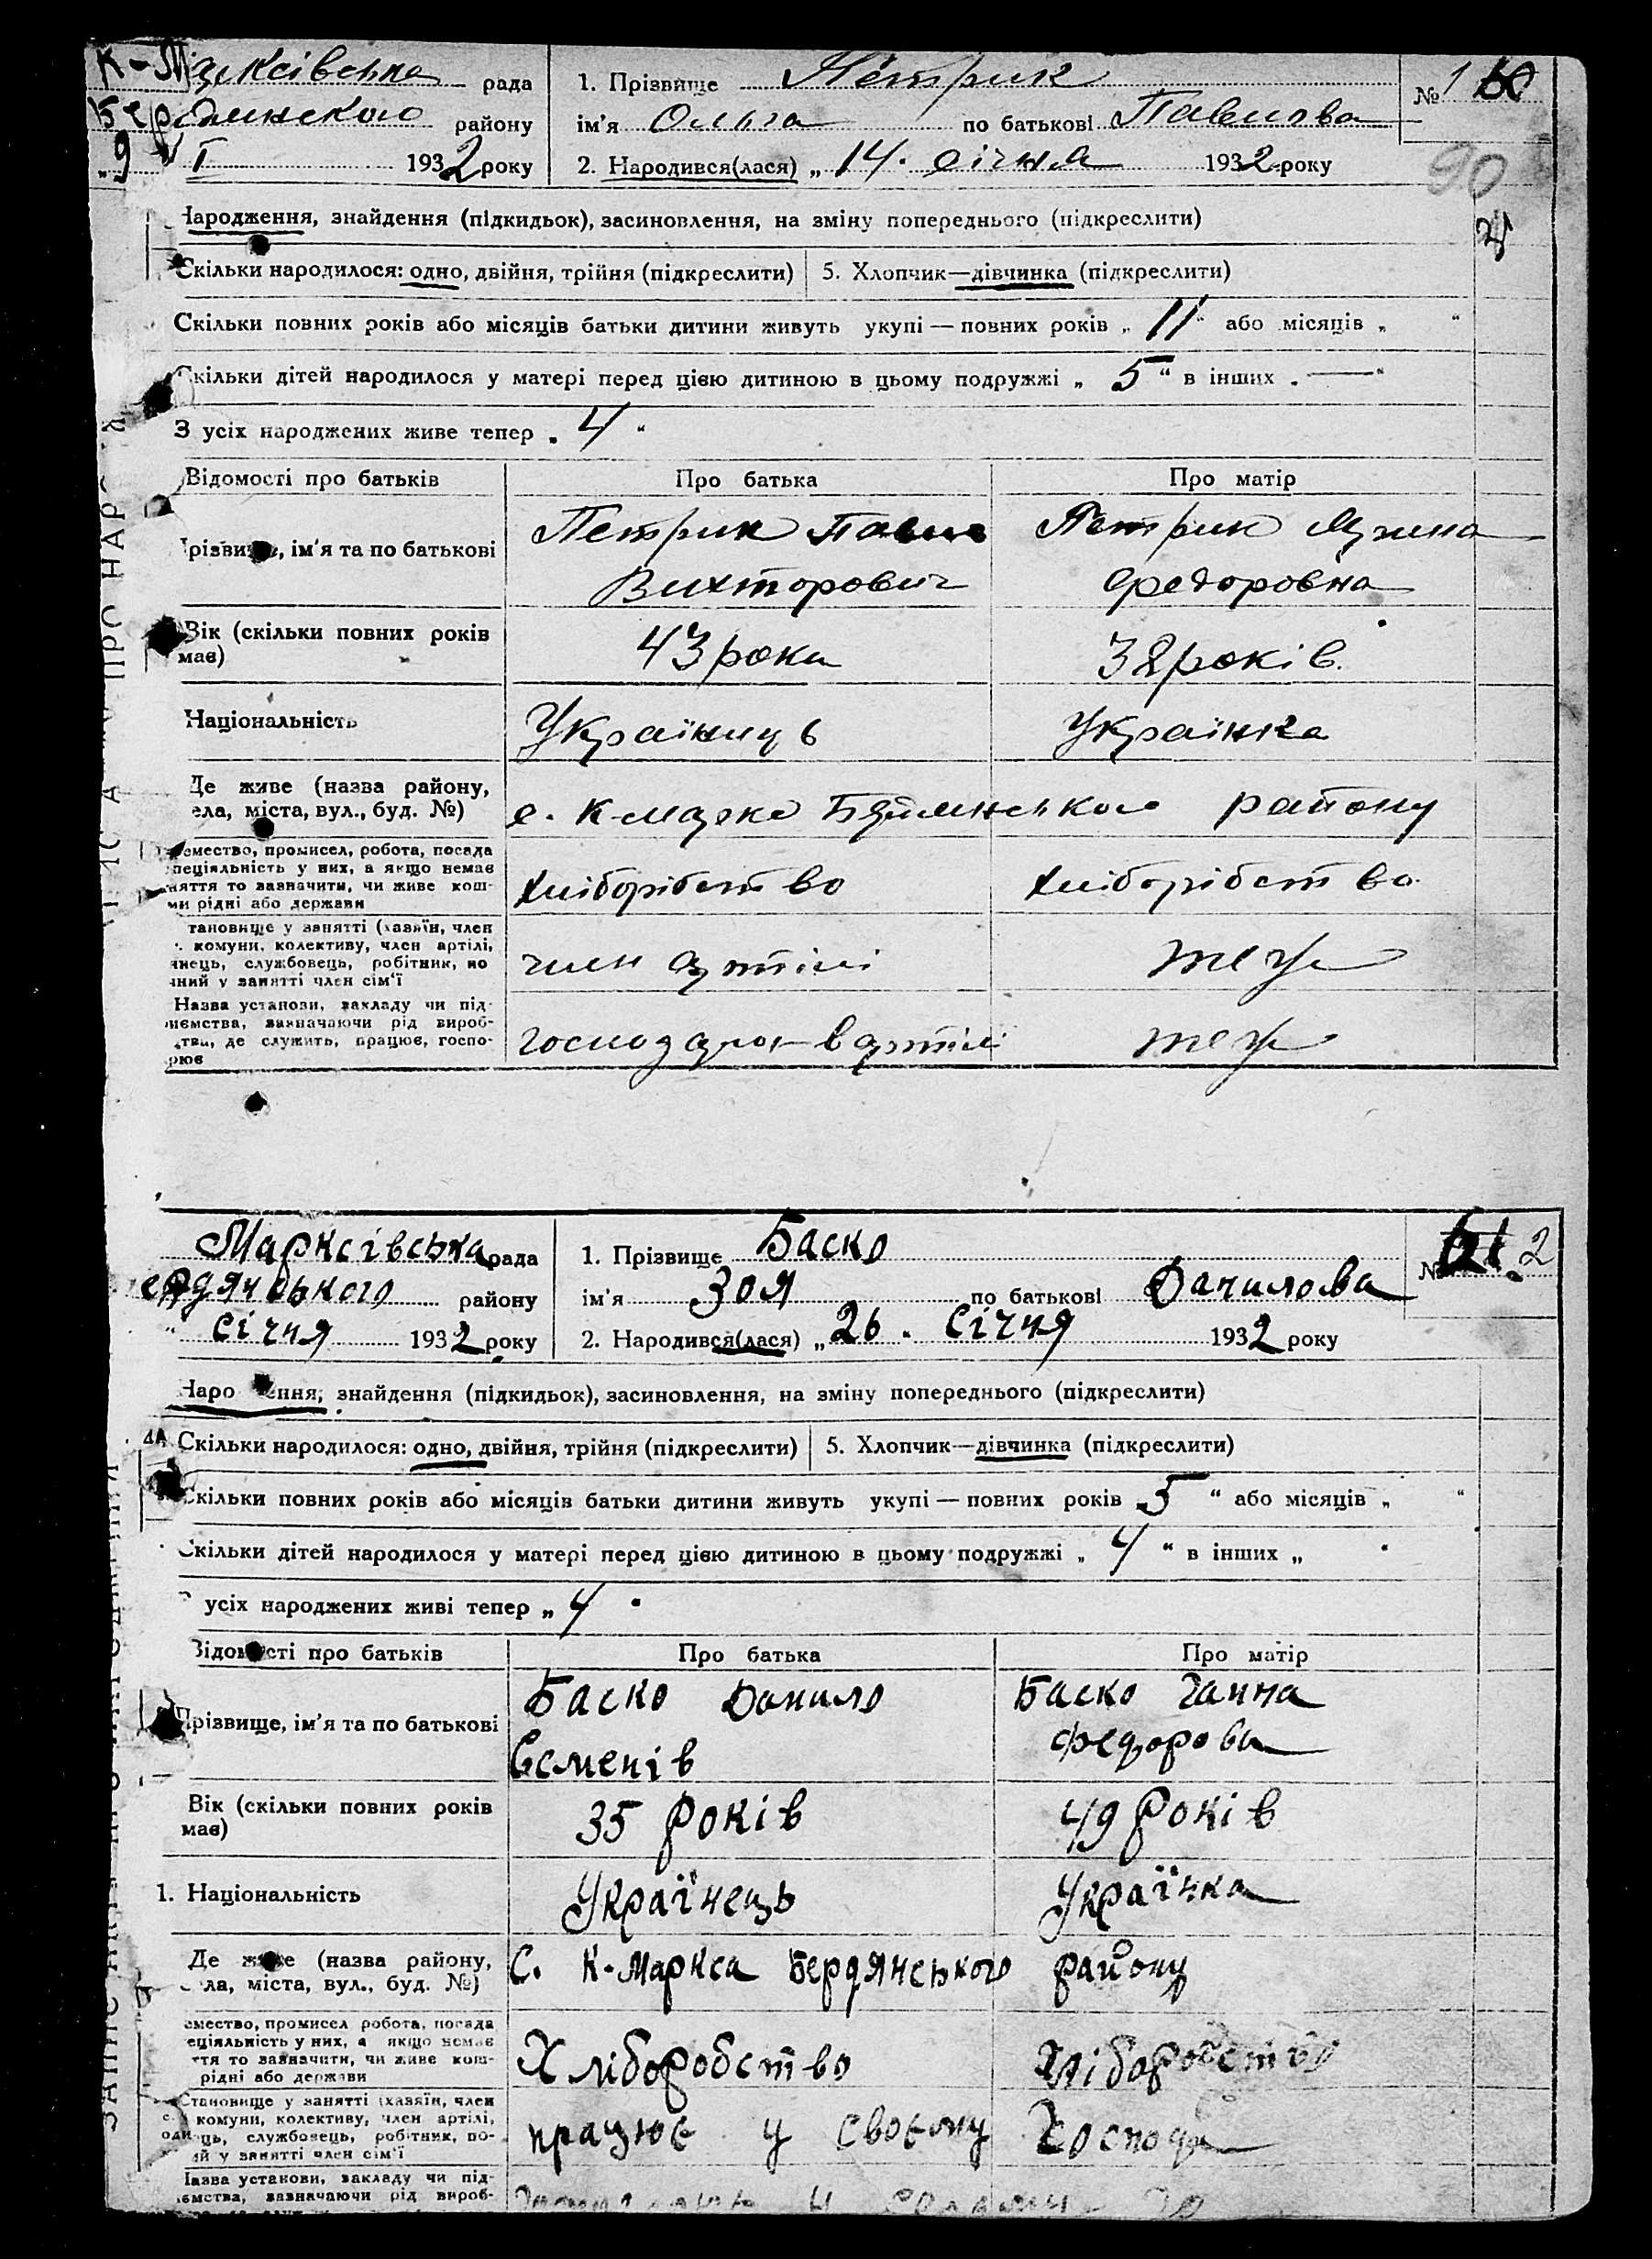 К-Марксівська рада
1. Прізвище Петрик
№ 1
Бердянського району
ім'я Ольга по батькові Павлова
9 I 1932 року
2. Народився(лася) „14. січня 1932 року
90
Народження, знайдення (підкидьок), засиновлення, на зміну попереднього (підкреслити)
Скільки народилося: одно, двійня, трійня (підкреслити) 5. Хлопчик—дівчинка (підкреслити)
Скільки повних років або місяців батьки дитини живуть укупі — повних років „ 11 “ або місяців „ “
Скільки дітей народилося у матері перед цією дитиною в цьому подружжі „ 5 “ в інших „ — “
З усіх народжених живе тепер „ 4 “
Відомості про батьків Про батька Про матір
Прізвище, ім'я та по батькові
Петрик Павло Петрик
Вихторович Федоровна
Вік (скільки повних років має)
43 рока 38 років.
Національність Україниць Українка
Де живе (назва району,
ела, міста, вул., буд. №)
с. К-Маркса району
емество, промисел, робота, посада
пеціяльність у них, а якщо немає
няття то зазначити, чи живе кош-
ми рідні або держави
хліборібство хліборібство
тановище у занятті (хазяїн, член
комуни, колективу, член артілі,
янець, службовець, робітник, по
чний у занятті член сім'ї
член артілі теж
Назва установи, закладу чи під-
иємства, зазначаючи рід вироб-
тва, де служить, працює, госпо-
рює
в артілі теж
Марксівська рада
1. Прізвище Баско
№ 2
ердянського району
ім'я Зоя по батькові Данилова
“ січня 1932 року
2. Народився(лася) „26. Січня 1932 року
Наро ення, знайдення (підкидьок), засиновлення, на зміну попереднього (підкреслити)
Скільки народилося: одно, двійня, трійня (підкреслити) 5. Хлопчик—дівчинка (підкреслити)
Скільки повних років або місяців батьки дитини живуть укупі — повних років 5 “ або місяців „ “
Скільки дітей народилося у матері перед цією дитиною в цьому подружжі „ 4 “ в інших „ “
усіх народжених живі тепер „ 4 “
Відомості про батьків Про батька Про матір
Прізвище, ім'я та по батькові
Баско Данило Баско Ганна
Семенів Федорова
Вік (скільки повних років має)
35 Років 49 Років
1. Національність Українець Українка
Де живе (назва району,
ла, міста, вул., буд. №)
С. К-Маркса Бердянського району
емество, промисел робота, посада
еціяльність у них, а якщо немає
ття то зазначити, чи живе кош-
рідні або держави
Хліборобство Хліборобство
Становище у занятті (хазяїн, член
комуни, колективу, член артілі,
одинець, службовець, робітник, по-
ий у занятті член сім'ї
працює у своєму господ
Назва установи, закладу чи під-
ємства, зазначаючи рід вироб-